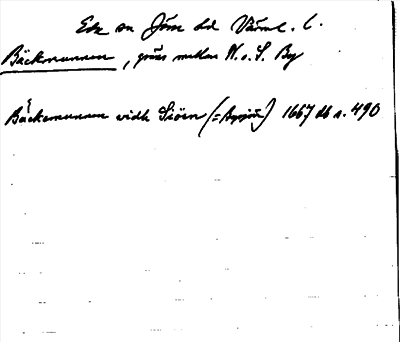 Eda sn Jösse hd Värml. l.
Bäckmunnen, gräns mellan N. o. S. By
Bäckemunnen vidh Siöen (= Bysjön) 1667 db n. 490